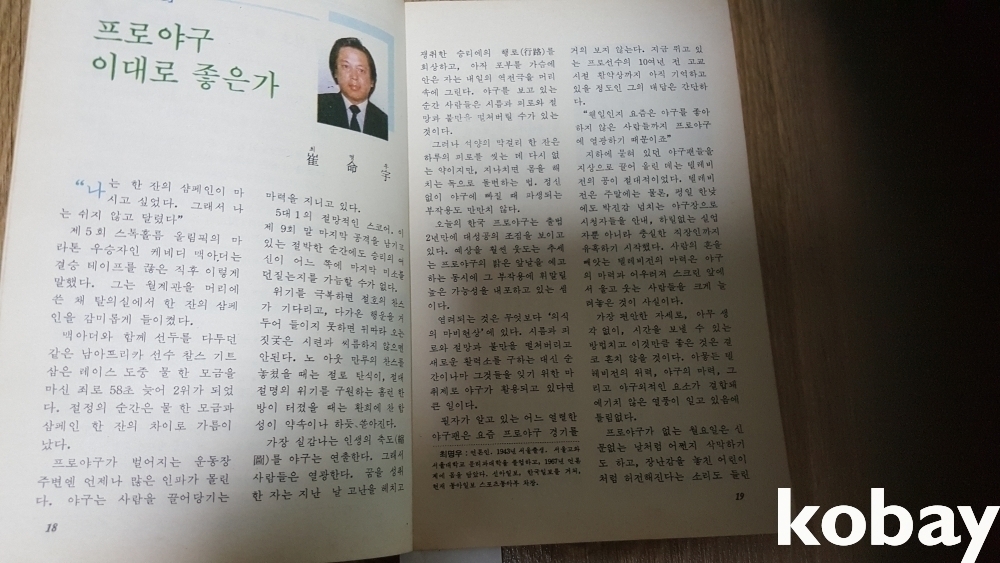 프로야구
이대로 좋은가
최 명 우
崔 命 宇
“나는 한 잔의 샴페인이 마
시고 싶었다. 그래서 나
는 쉬지 않고 달렸다”
제 5 회 스톡홀름 올림픽의 마
라톤 우승자인 케네디 맥아더는
결승 테이프를 끊은 직후 이렇게
말했다. 그는 월계관을 머리에
쓴 채 탈의실에서 한 잔의 샴페
인을 감미롭게 들이켰다.
맥아더와 함께 선두를 다투던
같은 남아프리카 선수 찰스 기트
삼은 레이스 도중 물 한 모금을
마신 죄로 58초 늦어 2위가 되었
다. 절정의 순간은 물 한 모금과
샴페인 한 잔의 차이로 가름이
났다.
프로야구가 벌어지는 운동장
주변엔 언제나 많은 인파가 몰린
다. 야구는 사람을 끌어당기는
18
마력을 지니고 있다.
5대 1의 절망적인 스코어. 이
제 9회 말 마지막 공격을 남기고
있는 절박한 순간에도 승리의 여
신이 어느 쪽에 마지막 미소를
던질는지를 가늠할 수가 없다.
위기를 극복하면 절호의 찬스
가 기다리고, 다가온 행운을 거
두어 들이지 못하면 뒤따라 오는
짓궂은 시련과 씨름하지 않으면
안된다. 노 아웃 만루의 찬스를
놓쳤을 때는 절로 탄식이, 절대
절명의 위기를 구원하는 홈런 한
방이 터졌을 때는 환희에 찬 함
성이 약속이나 하듯 쏟아진다.
가장 실감나는 인생의 축도(縮
圖)를 야구는 연출한다. 그래서
사람들은 열광한다. 꿈을 성취
한 자는 지난 날 고난을 헤치고
쟁취한 승리에의 행로(行路)를
회상하고, 아직 포부를 가슴에
안은 자는 내일의 역전극을 머리
속에 그린다. 야구를 보고 있는
순간 사람들은 시름과 피로와 절
망과 불만을 떨쳐버릴 수가 있는
것이다.
그러나 석양의 막걸리 한 잔은
하루의 피로를 씻는 데 다시 없
는 약이지만, 지나치면 몸을 해
치는 독으로 돌변하는 법. 정신
없이 야구에 빠질 때 파생되는
부작용도 만만치 않다.
오늘의 한국 프로야구는 출범
2년만에 대성공의 조짐을 보이고
있다. 예상을 훨씬 웃도는 추세
는 프로야구의 밝은 앞날을 예고
하는 동시에 그 부작용에 휘말릴
높은 가능성을 내포하고 있는 셈
이다.
염려되는 것은 무엇보다 ‘의식
의 마비현상’에 있다. 시름과 피
로와 절망과 불만을 떨쳐버리고
새로운 활력소를 구하는 대신 순
간이나마 그것들을 잊기 위한 마
취제로 야구가 활용되고 있다면
큰 일이다.
필자가 알고 있는 어느 열렬한
야구팬은 요즘 프로야구 경기를
최명우 : 언론인. 1943년 서울출생. 서울고와
서울대학교 문리과대학을 졸업하고, 1967년 언론
계에 몸을 담았다. 신아일보, 한국일보를 거쳐,
현재 동아일보 스포츠동아부 차장.
거의 보지 않는다. 지금 뛰고 있
는 프로선수의 10여년 전 고교
시절 활약상까지 아직 기억하고
있을 정도인 그의 대답은 간단하
다.
“웬일인지 요즘은 야구를 좋아
하지 않은 사람들까지 프로야구
에 열광하기 때문이죠”
지하에 묻혀 있던 야구팬들을
지상으로 끌어 올린 데는 텔레비
전의 공이 절대적이었다. 텔레비
전은 주말에는 물론, 평일 한낮
에도 박진감 넘치는 야구장으로
시청자들을 안내, 하릴없는 실업
자뿐 아니라 충실한 직장인까지
유혹하기 시작했다. 사람의 혼을
빼앗는 텔레비전의 마력은 야구
의 마력과 어우러져 스크린 앞에
서 울고 웃는 사람들을 크게 늘
려놓은 것이 사실이다.
가장 편안한 자세로, 아무 생
각 없이, 시간을 보낼 수 있는
방법치고 이것만큼 좋은 것은 결
코 흔치 않을 것이다. 아뭏든 텔
레비전의 위력, 야구의 마력, 그
리고 야구외적인 요소가 결합해
예기치 않은 열풍이 일고 있음에
틀림없다.
프로야구가 없는 월요일은 신
문없는 날처럼 어쩐지 삭막하기
도 하고, 장난감을 놓친 어린이
처럼 허전해진다는 소리도 들린
19
kobay